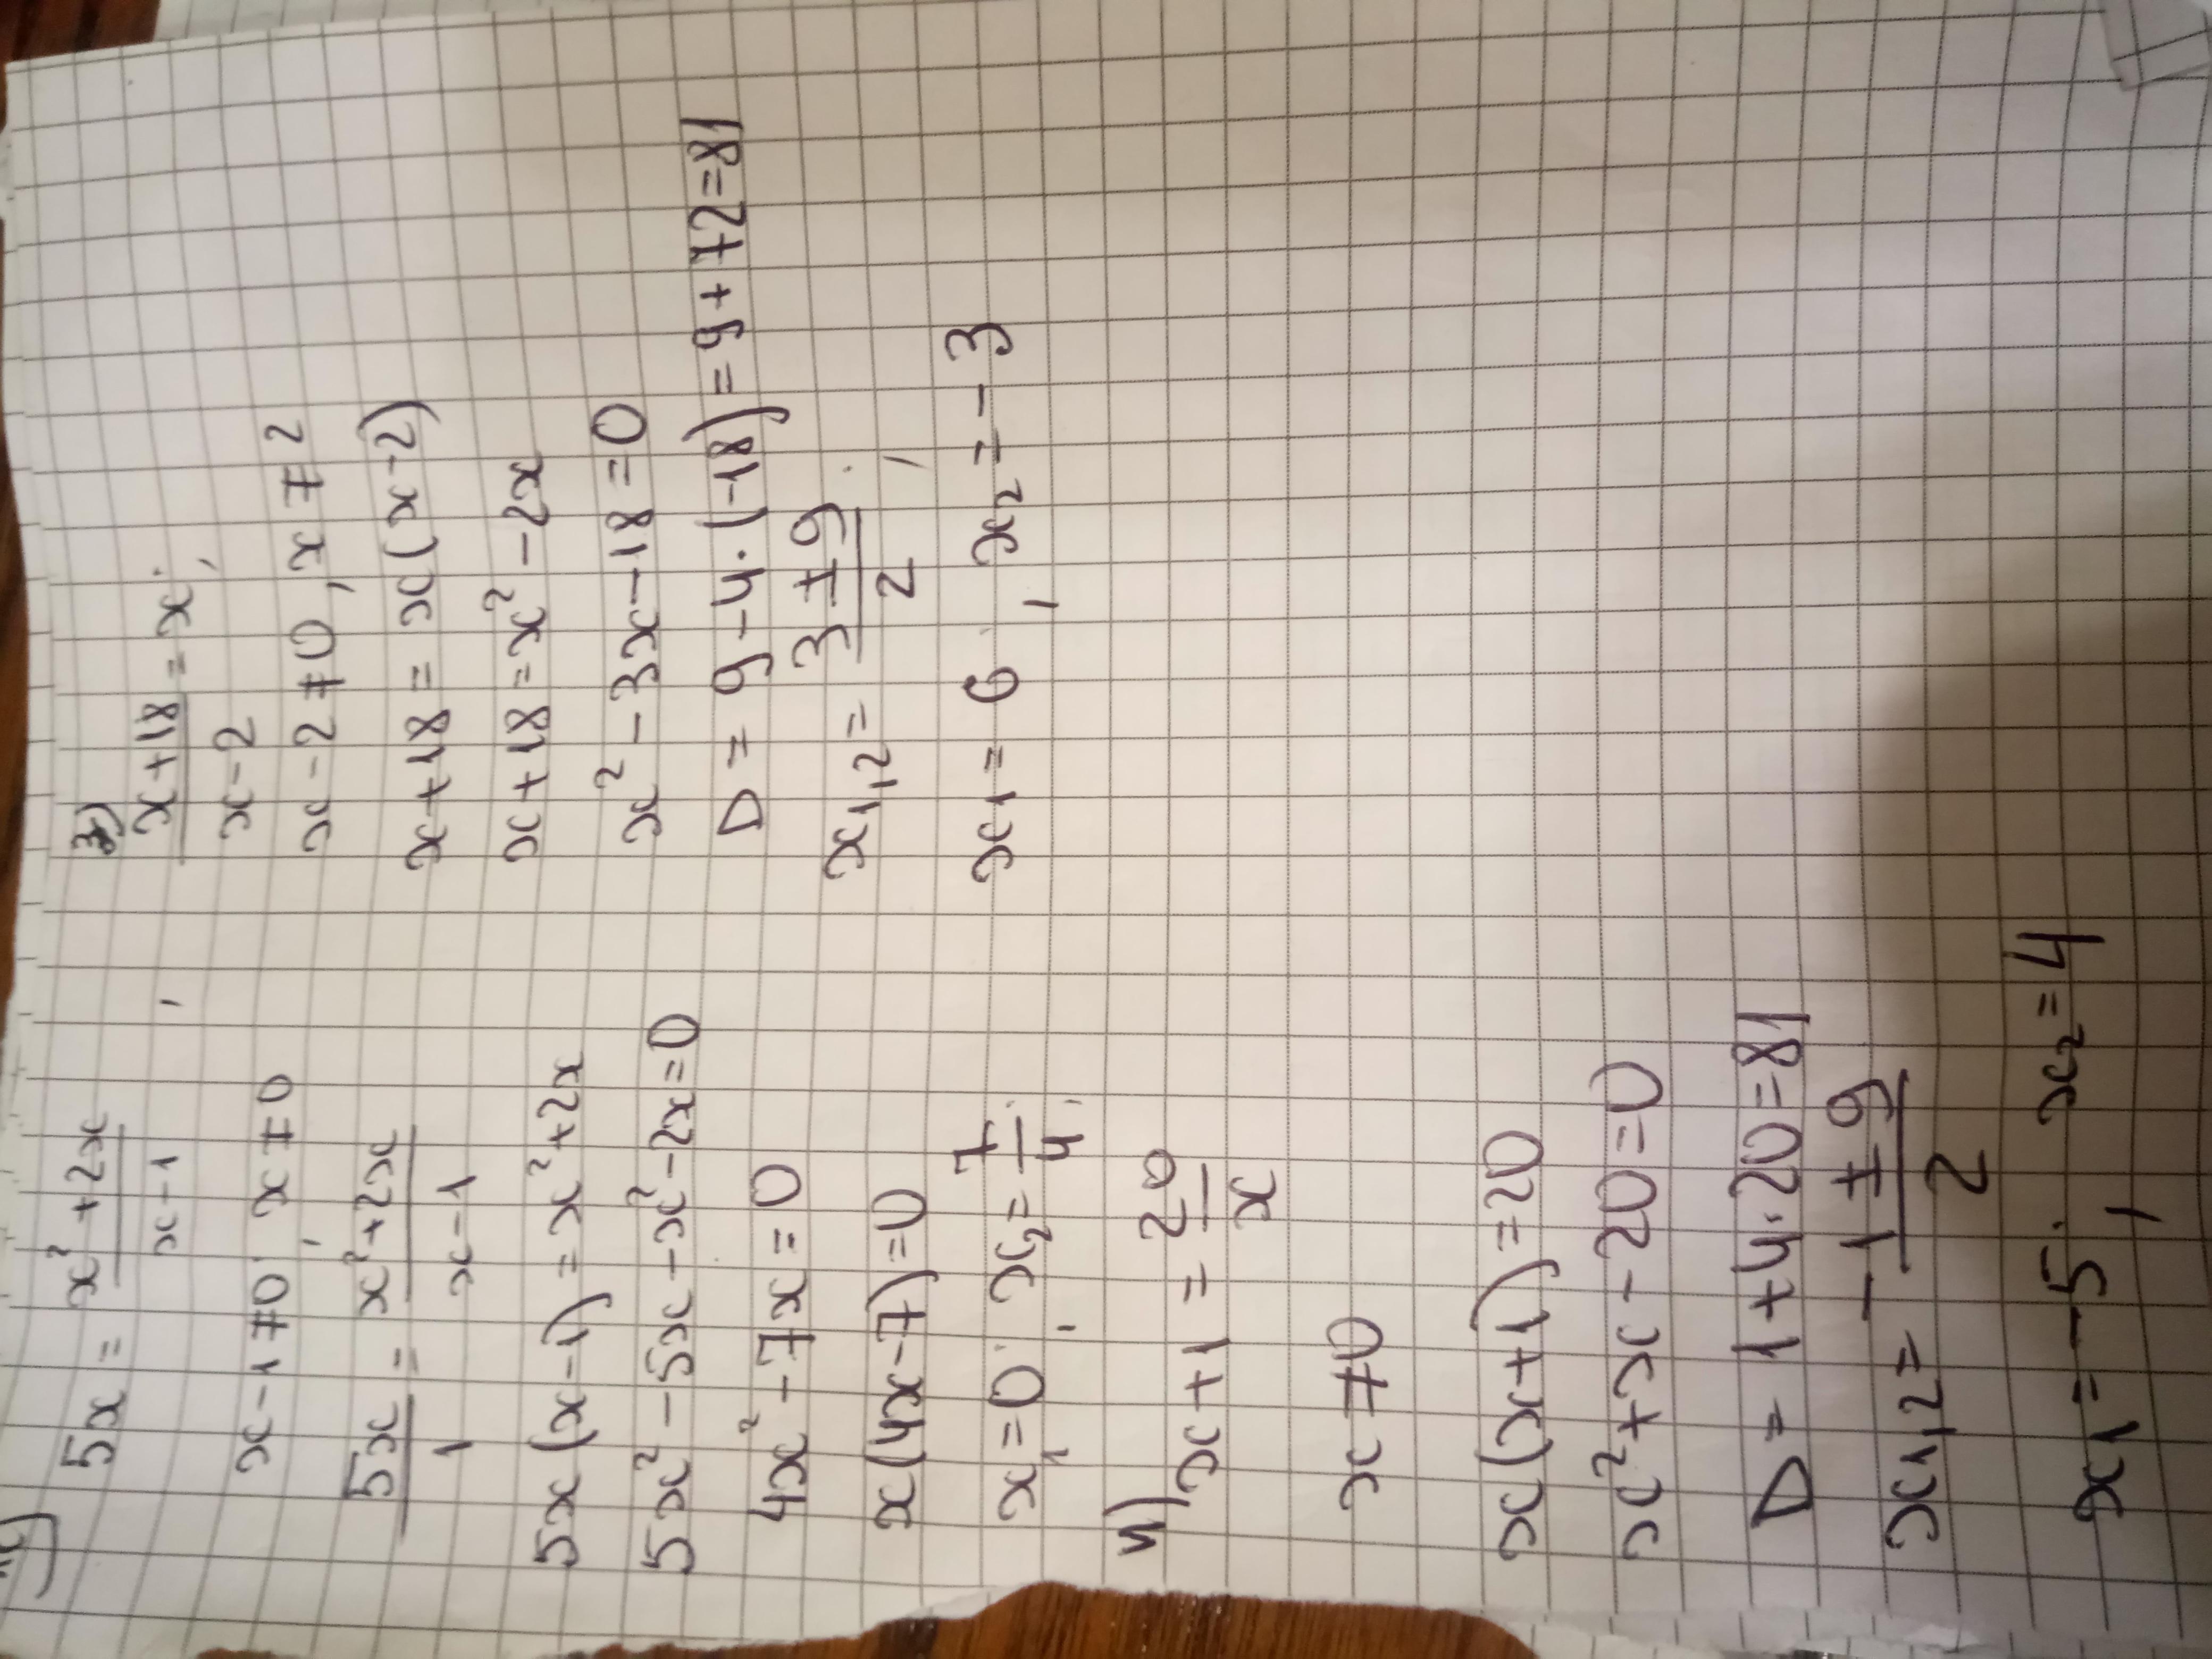 5x = x² + 2x / x - 1 ;
x - 1 ≠ 0; x ≠ 0
5x / 1 = x² + 2x / x - 1
5x(x - 1) = x² + 2x
5x² - 5x - x² - 2x = 0
4x² - 7x = 0
x(4x - 7) = 0
x₁ = 0; x₂ = 7/4;
4) x + 1 = 20/x
x ≠ 0
x(x + 1) = 20
x² + x - 20 = 0
D = 1 + 4·20 = 81
x₁,₂ = -1 ± 9 / 2
x₁ = -5; x₂ = 4
3)
x + 18 / x - 2 = x;
x - 2 ≠ 0, x ≠ 2
x + 18 = x(x - 2)
x + 18 = x² - 2x
x² - 3x - 18 = 0
D = 9 - 4·(-18) = 9 + 72 = 81
x₁,₂ = 3 ± 9 / 2 ;
x₁ = 6; x₂ = -3